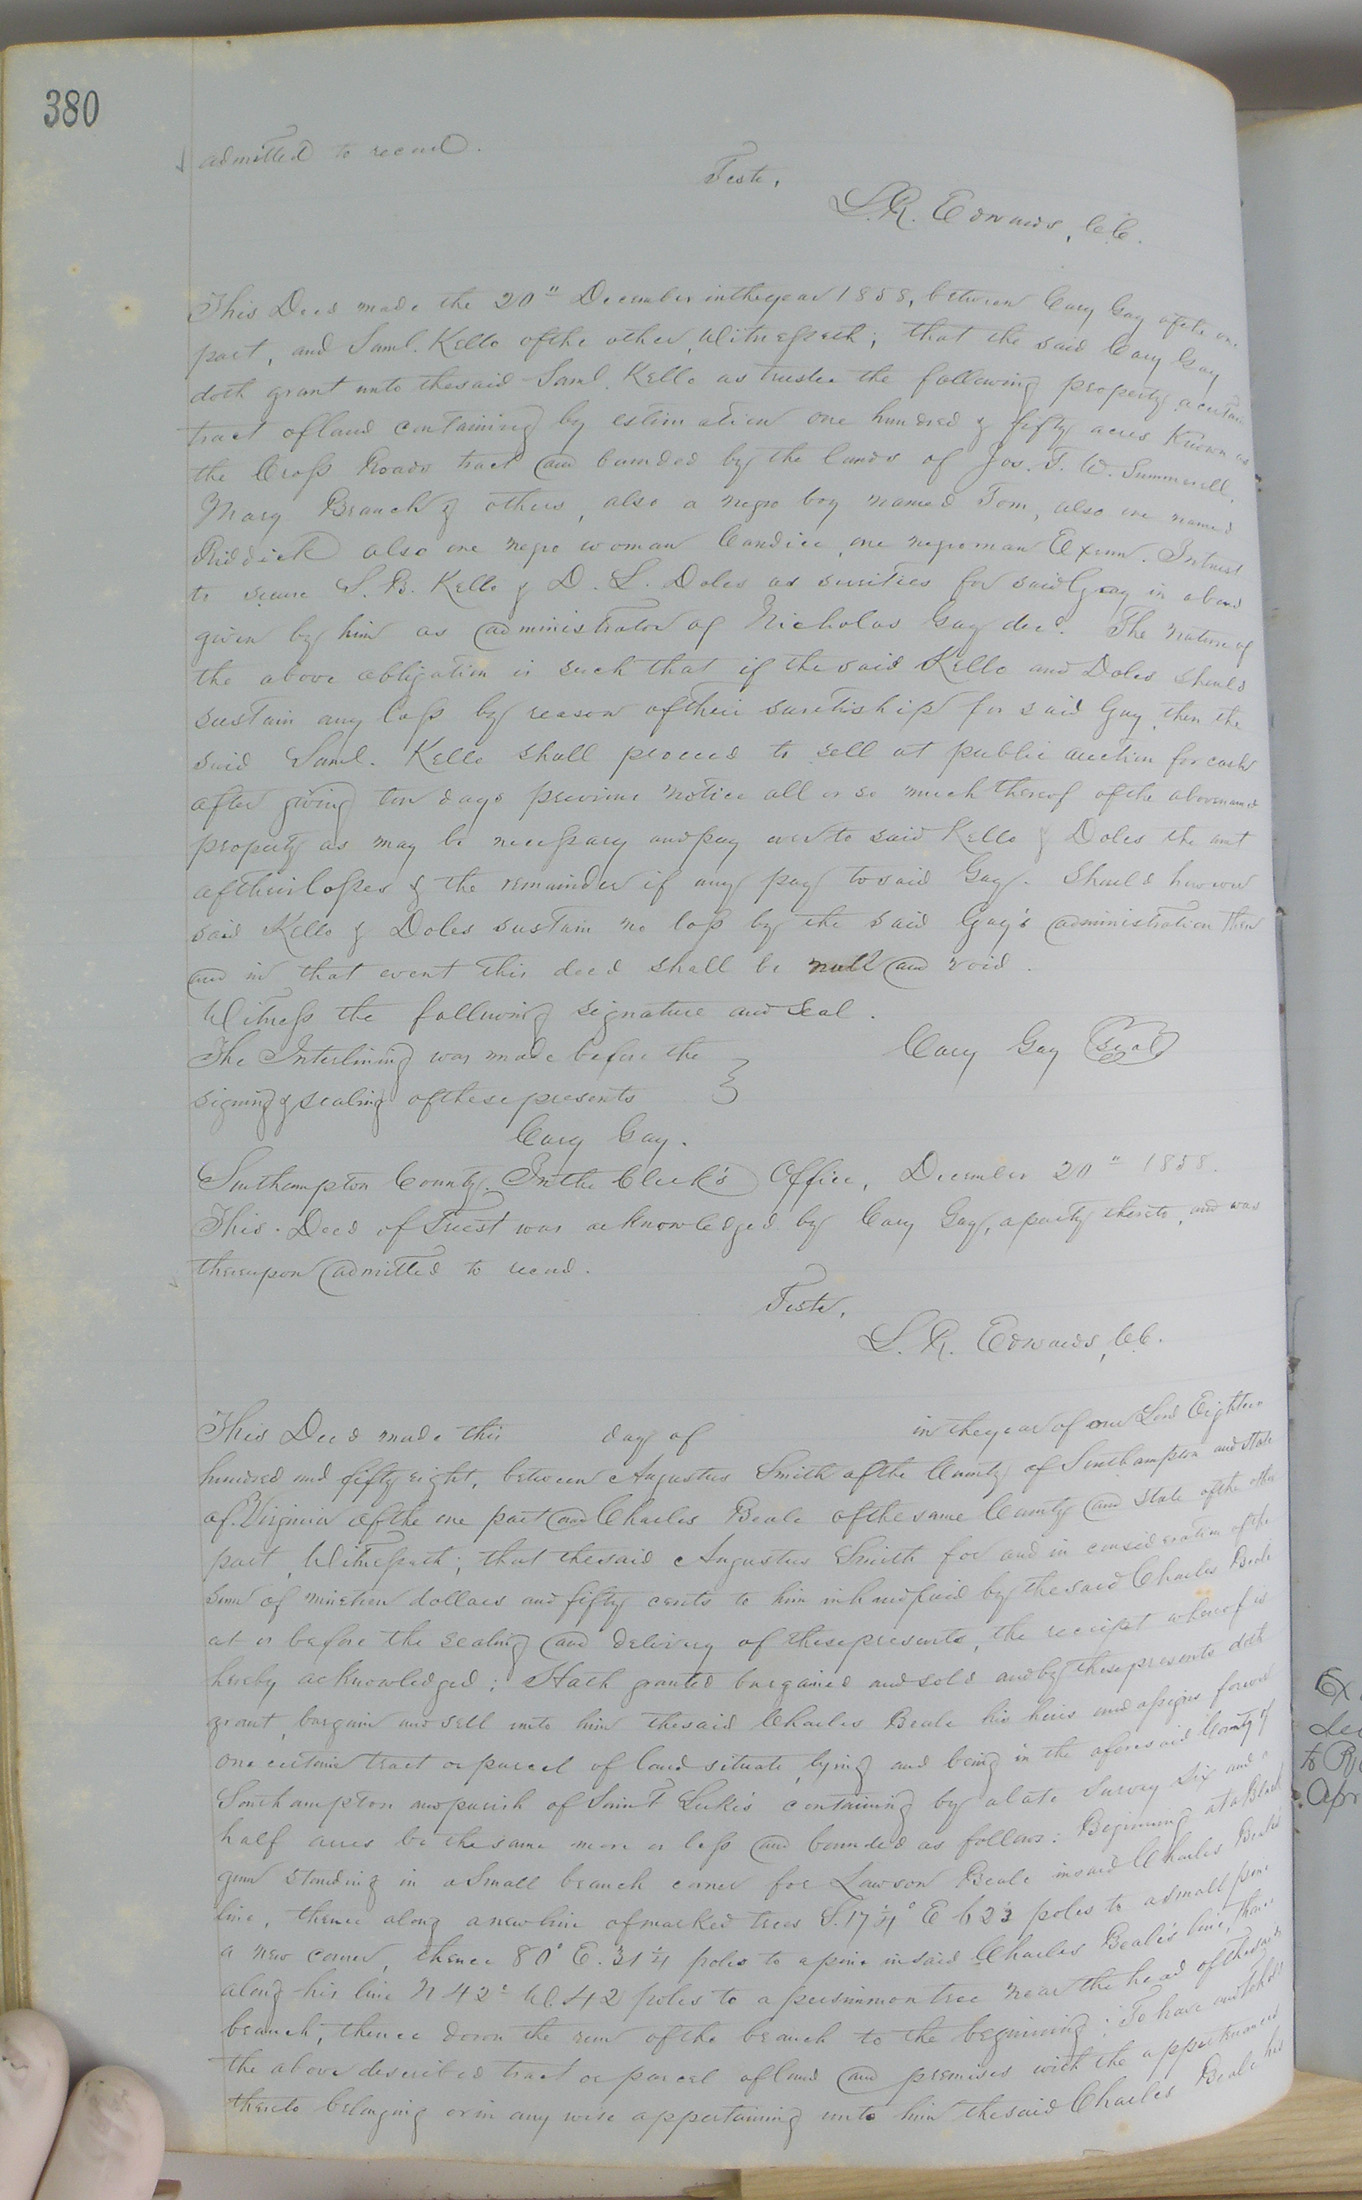 380
admitted to record.
Teste,
L. R. Edwards, C.C.
This Deed made the 20" December in the year 1858, between Cary Gay of the one
part, and Saml. Kello of the other, Witnesseth; that the said Cary Gay
doth grant unto the said Saml. Kello as trustee the following property a certain
tract of land containing by estimation one hundred & fifty acres Known as
the Cross Roads tract and bounded by the lands of Jos. T. W. Summerell,
Mary Branch & others, also a negro boy named Tom, also one named
Riddick also one negro woman Candice, one negro man Exum. In trust
to secure S. B. Kello & D. L. Doles as sureties for said Gay in a bond
given by him as administrator of Nicholas Gay decd. The nature of
the above obligation is such that if the said Kello and Doles should
sustain any loss by reason of their suretiship for said Gay, then the
said Saml. Kello shall proceed to sell at public auction for cash
after giving ten days previous notice all or so much thereof of the abovenamed
property as may be necessary and pay over to said Kello & Doles the amt
of their losses & the remainder if any pay to said Gay. Should however
said Kello & Doles sustain no loss by the said Gay's administration then
and in that event this deed shall be null and void.
Witness the following signature and seal.
Cary Gay (Seal)
The Interlining was made before the
signing & sealing of these presents
Cary Gay.
Southampton County. In the Clerk's Office, December 20" 1858.
This Deed of Trust was acknowledged by Cary Gay, a party thereto, and was
thereupon admitted to record.
Teste,
L. R. Edwards, C.C.
This Deed made this day of in the year of our Lord Eighteen
hundred and fifty eight, between Augustus Smith of the County of Southampton and state
of Virginia of the one part and Charles Beale of the same County and State of the other
part, Witnesseth; that the said Augustus Smith for and in consideration of the
sum of nineteen dollars and fifty cents to him in hand paid by the said Charles Beale
at or before the sealing and delivery of these presents, the receipt whereof is
hereby acknowledged; Hath granted bargained and sold and by these presents doth
grant, bargain and sell unto him the said Charles Beale his heirs and assigns forever
one certain tract or parcel of land situate, lying and being in the aforesaid County of
Southampton and parish of Saint Luke's containing by a late survey six and a
half acres be the same more or less and bounded as follows: Beginning at a Black
gum standing in a small branch corner for Lawson Beale in said Charles Beale's
line, thence along a new line of marked trees S. 17 1/4° E poles to a small pine
a new corner, thence 80° E. 31 1/4 poles to a pine in said Charles Beale's line, thence
along his line N 42° W. 42 poles to a persimmon tree near the head of the said
branch; thence down the run of the branch to the beginning: To have and to hold
the above described tract or parcel of land and premises with the appurtenances
thereto belonging or in any wise appertaining unto him the said Charles Beale his